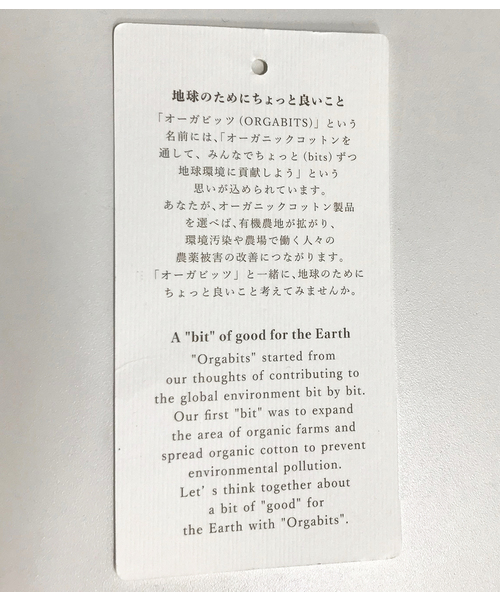 地球のためにちょっと良いこと
「オーガビッツ(ORGABITS)」という
名前には、「オーガニックコットンを
通して、みんなでちょっと(bits)ずつ
地球環境に貢献しよう」という
思いが込められています。
あなたが、オーガニックコットン製品
を選べば、有機農地が拡がり、
環境汚染や農場で働く人々の
農薬被害の改善につながります。
「オーガビッツ」と一緒に、地球のために
ちょっと良いこと考えてみませんか。
A "bit" of good for the Earth
"Orgabits" started from
our thoughts of contributing to
the global environment bit by bit.
Our first "bit" was to expand
the area of organic farms and
spread organic cotton to prevent
environmental pollution.
Let’ s think together about
a bit of "good" for
the Earth with "Orgabits".